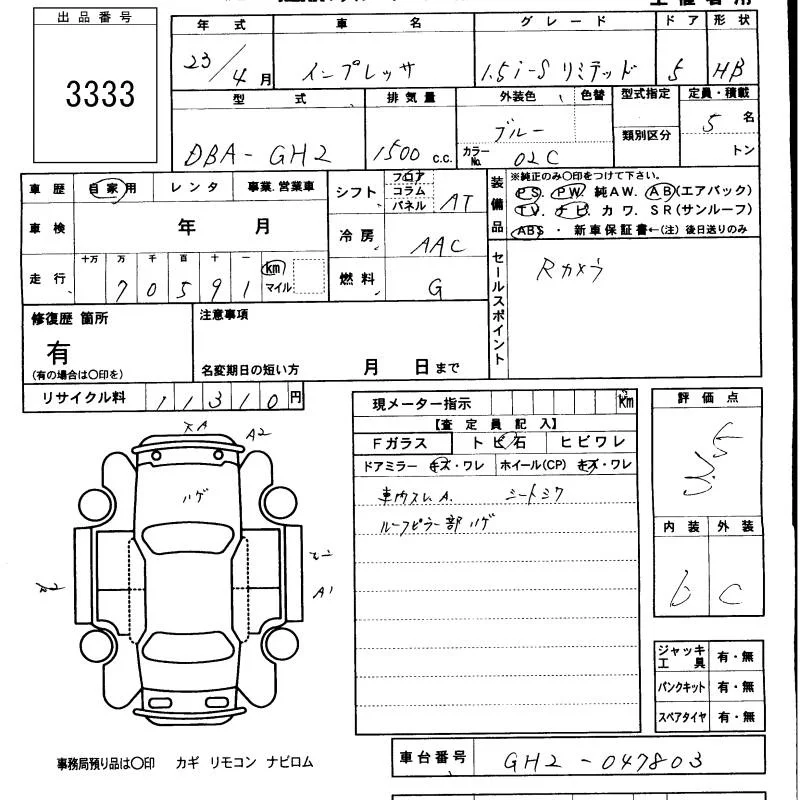 出品番号
3333
年式 車名 グレード ドア 形状
23/4月 インプレッサ 1.5i-S リミテッド 5 HB
型式 排気量 外装色 色替 型式指定 定員・積載
DBA-GH2 1500 c.c. ブルー カラーNo. 02C 類別区分 5名 トン
車歴 自家用 レンタ 事業.営業車
シフト フロア コラム パネル AT
装備品 ※純正のみ〇印をつけて下さい。
PS. PW. 純AW. AB(エアバック)
TV. ナビ. カワ. SR(サンルーフ)
ABS ・ 新車保証書←(注) 後日送りのみ
車検 年 月
冷房 AAC
走行 十万 万 千 百 十 一
70591 km マイル
燃料 G
セールスポイント Rカメラ
修復歴 箇所
有
(有の場合は〇印を)
注意事項
名変期日の短い方 月 日まで
リサイクル料 11310円
現メーター指示 km
【査定員記入】
Fガラス トビ石 ヒビワレ
ドアミラー キズ・ワレ ホイール(CP) キズ・ワレ
車内スレA. シートシワ
ルーフピラー部ハゲ
評価点
内装 外装
b C
XA A2
ハゲ
A1
ジャッキ工具 有・無
パンクキット 有・無
スペアタイヤ 有・無
事務局預り品は〇印 カギ リモコン ナビロム
車台番号 GH2-047803